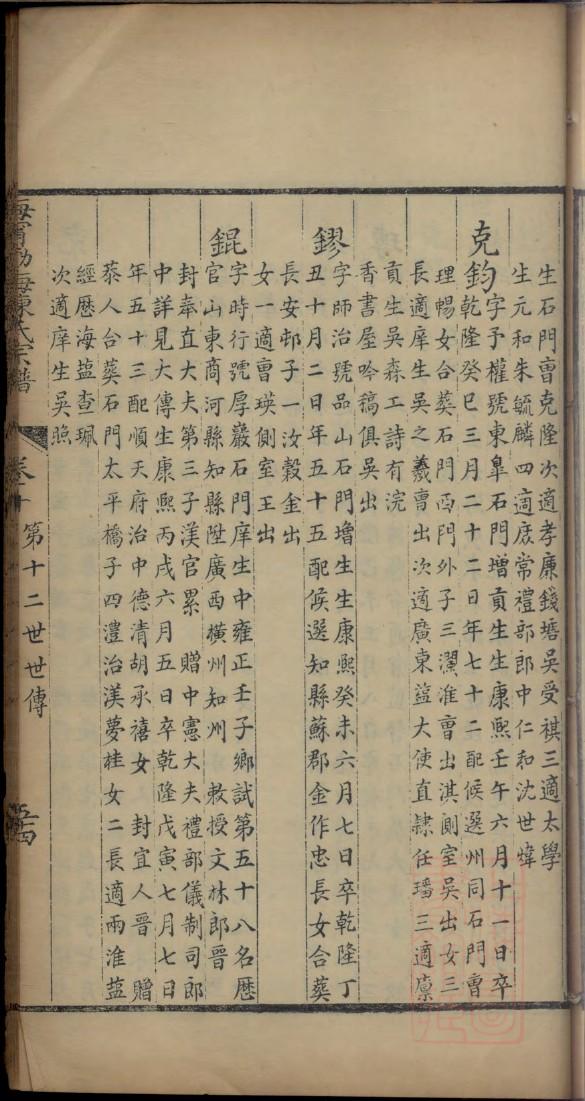 生石門曹克隆次適孝廉錢塘吳受祺三適太學
生元和朱毓麟四適庶常禮部郎中仁和沈世煒
克鈞字予權號東臯石門增貢生生康熙壬午六月十一日卒
乾隆癸巳三月二十二日年七十二配候選州同石門曹
理暢女合葬石門西門外子三瀾淮曹出淇側室吳出女三
長適庠生吳之羲曹出次適廣東鹽大使直隸任瑨三適廩
貢生吳森工詩有浣
香書屋吟稿俱吳出
鏐字師治號品山石門增生生康熙癸未六月七日卒乾隆丁
丑十月二日年五十五配候選知縣蘇郡金作忠長女合葬
長安邨子一汝榖金出
女一適曹瑛側室王出
錕字時行號厚巖石門庠生中雍正壬子鄉試第五十八名歷
官山東商河縣知縣陞廣西橫州知州 敕授文林郎晉
封奉直大夫第三子渼官累 贈中憲大夫禮部儀制司郎
中詳見大傳生康熙丙戌六月五日卒乾隆戊寅七月七日
年五十三配順天府治中德清胡承禧女 封宜人晉 贈
恭人合葬石門太平橋子四澧治渼夢桂女二長適兩淮鹽
經歷海鹽查珮
次適庠生吳照
海寧渤海陳氏宗譜 卷十 第十二世世傳 五四